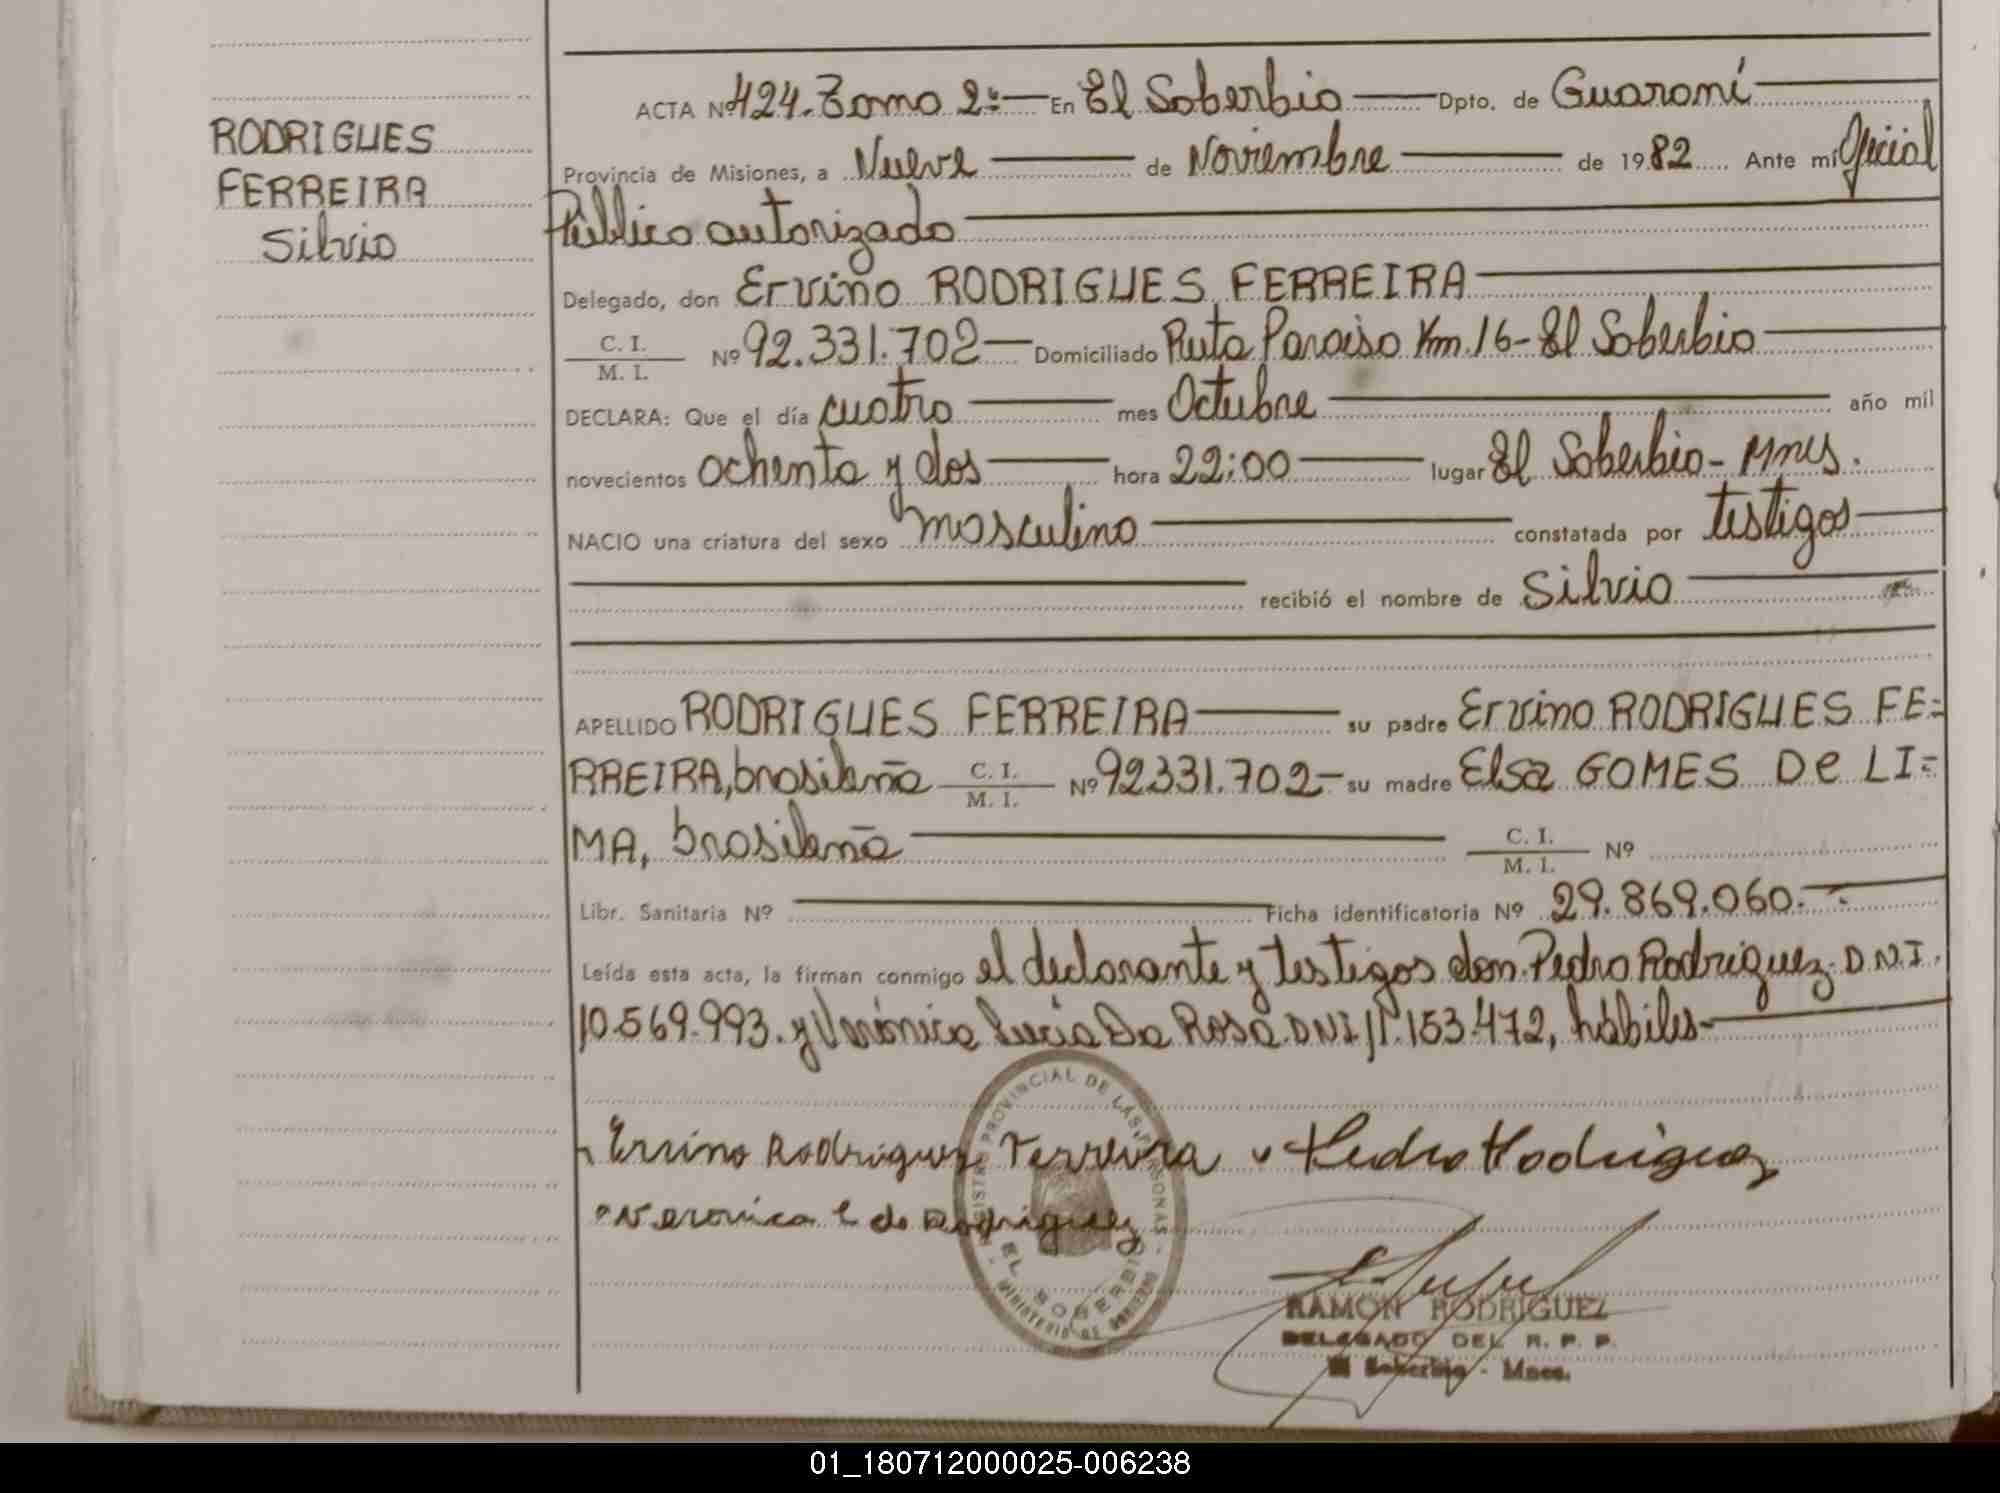 RODRIGUES
FERREIRA
Silvio
ACTA Nº 424. Tomo 2º.— En El Soberbio — Dpto. de Guaraní
Provincia de Misiones, a Nueve — de Noviembre — de 1982 Ante mí Oficial
Público autorizado
Delegado, don Ervino RODRIGUES FERREIRA
C. I.
M. I. Nº 92.331.702— Domiciliado Ruta Paraiso Km. 16- El Soberbio
DECLARA: Que el día cuatro — mes Octubre — año mil
novecientos ochenta y dos — hora 22:00 — lugar El Soberbio- Mnes.
NACIO una criatura del sexo masculino — constatada por testigos
recibió el nombre de Silvio
APELLIDO RODRIGUES FERREIRA — su padre Ervino RODRIGUES FE=
RREIRA, brasileña C. I.
M. I. Nº 92331.702- su madre Elsa GOMES De LI=
MA, brasileña — C. I.
M. I. Nº
Libr. Sanitaria Nº — Ficha identificatoria Nº 29.869.060.-
Leída esta acta, la firman conmigo el declarante y testigos don Pedro Rodriguez. D.N.I.
10.569.993. y Verónica Lucia Da Rosa. DNI 11.153.472, hábiles-
Ervino Rodriguez Ferreira Pedro Rodriguez
Veronica L de Rodriguez
REGISTRO PROVINCIAL DE LAS PERSONAS
EL SOBERBIO
MINISTERIO DE GOBIERNO
RAMON RODRIGUEZ
DELEGADO DEL R. P. P.
El Soberbio - Mnes.
01_180712000025-006238